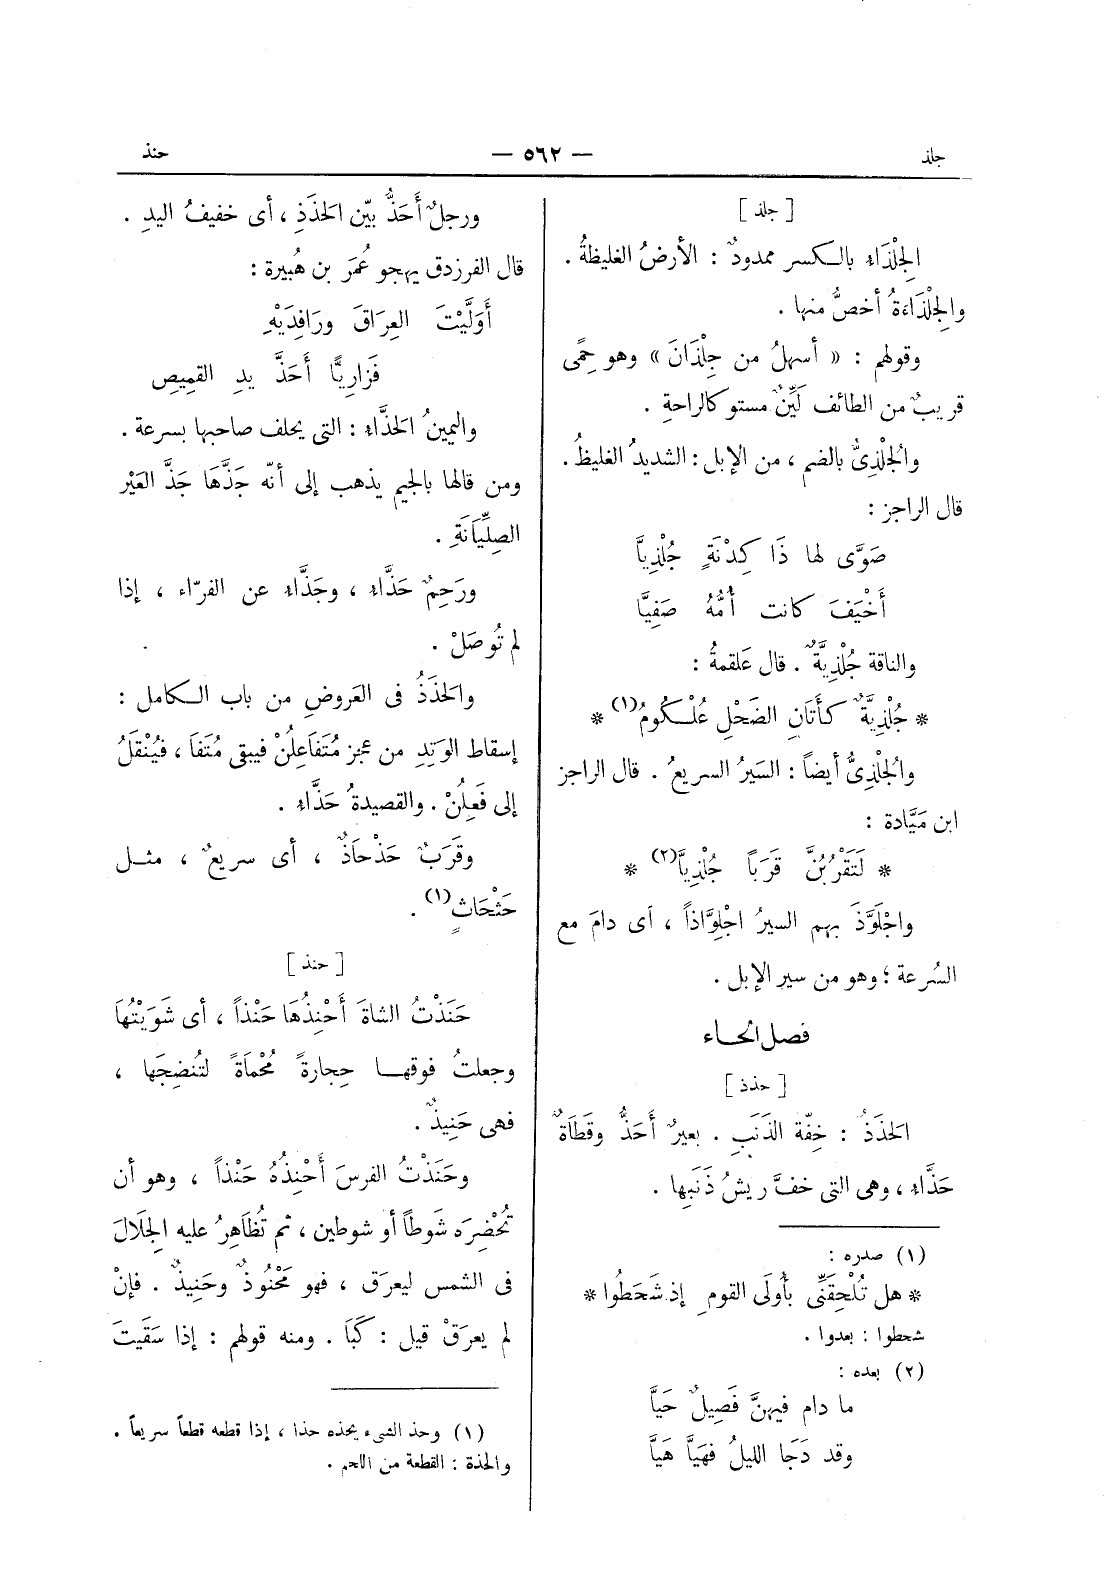 جلذ — ٥٦٢ — حنذ
[ جلذ ]
الجِلْذَاء بالكسر ممدودٌ : الأرضُ الغليظةُ .
والجِلْذَاءَةُ أخصُّ منها .
وقولهم : « أسهلُ من جِلْذَانَ » وهو حِمًى
قريبٌ من الطائف لَيِّنٌ مستو كالراحةِ .
والجُلْذِىُّ بالضم ، من الإبل : الشديدُ الغليظُ .
قال الراجز :
صَوَّى لها ذَا كِدْنَةٍ جُلْذِيًّا
أَخْيَفَ كانت أُمُّهُ صَفِيًّا
والناقة جُلْذِيَّةٌ . قال عَلقمةُ :
* جُلْذِيَّةٌ كَأَتَانِ الضَحْلِ عُلْكُومُ (١) *
والجُلْذِىُّ أيضاً : السَيرُ السريعُ . قال الراجز
ابن مَيَّادة :
* لَتَقْرُبُنَّ قَرَباً جُلْذِيًّا (٢) *
واجْلَوَّذَ بهم السيرُ اجْلِوَّاذاً ، أى دامَ مع
السُرعة ؛ وهو من سير الإبل .
فصل الحاء
[ حذذ ]
الحَذَذُ : خِفّة الذَنَبِ . بعيرٌ أَحَذُّ وقَطَاةٌ
حَذَّاء ، وهى التى خفَّ ريشُ ذَنَبِها .
(١) صدره :
* هل تُلْحِقَنِّى بأُولَى القومِ إذ شَحَطُوا *
شحطوا : بعدوا .
(٢) بعده :
ما دام فيهنَّ فَصِيلٌ حَيَّا
وقد دَجَا الليلُ فهَيَّا هَيَّا
ورجلٌ أَحَذُّ بيّن الحَذَذِ ، أى خفيفُ اليدِ .
قال الفرزدق يهجو عُمَرَ بن هُبيرة :
أَوَلَّيْتَ العِرَاقَ ورَافِدَيْهِ
فَزَارِيًّا أَحَذَّ يدِ القَمِيصِ
واليمينُ الحَذَّاء : التى يحلف صاحبها بسرعة .
ومن قالها بالجيم يذهب إلى أنّه جَذَّهَا جَذَّ العَيْر
الصِلِّيَانَةِ .
ورَحِمٌ حَذَّاء ، وجَذَّاء عن الفرّاء ، إذا
لم تُوصَلْ .
والحَذَذُ فى العَروضِ من باب الكامل :
إسقاط الوَتِدِ من عجز مُتَفَاعِلُنْ فيبقى مُتَفَا ، فيُنْقَلُ
إلى فَعِلُنْ . والقصيدةُ حَذَّاء .
وقَرَبٌ حَذْحَاذٌ ، أى سريعٌ ، مثل
حَثْحَاثٍ (١) .
[ حنذ ]
حَنَذْتُ الشاةَ أَحْنِذُهَا حَنْذاً ، أى شَوَيْتُهَا
وجعلتُ فوقها حِجارةً مُحْمَاةً لتُنضِجَها ،
فهى حَنِيذٌ .
وحَنَذْتُ الفرسَ أَحْنِذُهُ حَنْذاً ، وهو أن
تُحْضِرَه شَوطاً أو شوطين ، ثم تُظَاهِرُ عليه الجِلَالَ
فى الشمس ليعرَق ، فهو مَحْنُوذٌ وحَنِيذٌ . فإنْ
لم يعرَقْ قيل : كَبَا . ومنه قولهم : إذا سَقَيتَ
(١) وحذ الشىء يحذه حذا ، إذا قطعه قطعاً سريعاً .
والحذة : القطعة من اللحم .